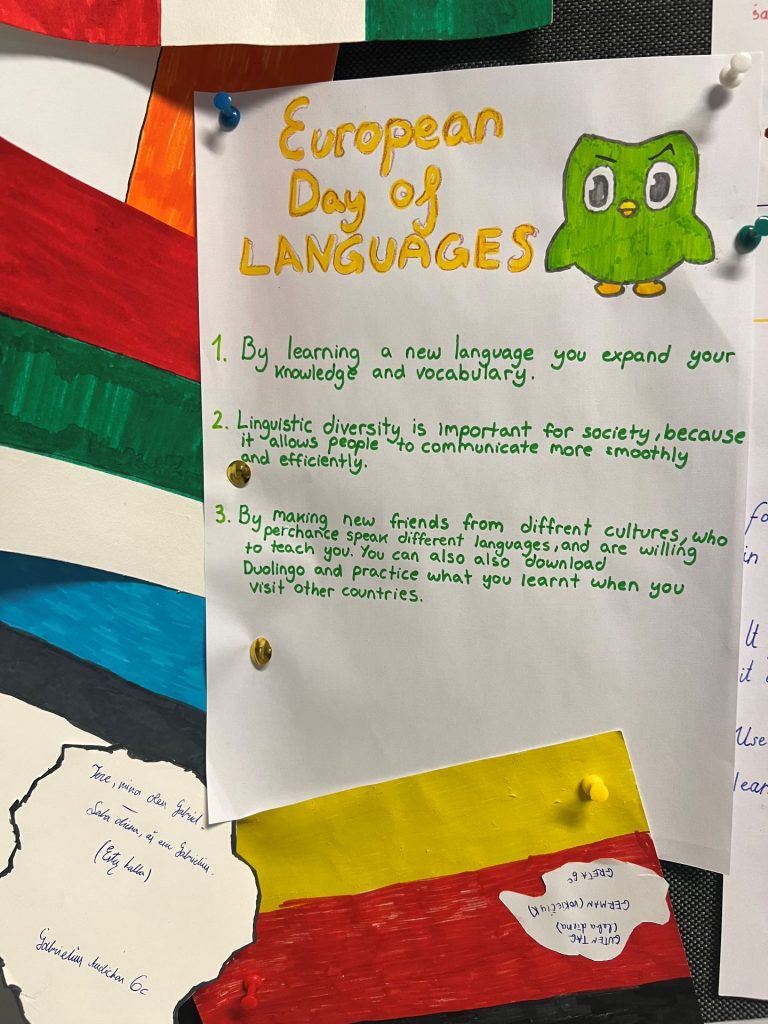 European
Day of
LANGUAGES
1. By learning a new language you expand your
knowledge and vocabulary.
2. Linguistic diversity is important for society, because
it allows people to communicate more smoothly
and efficiently.
3. By making new friends from diffrent cultures, who
perchance speak different languages, and are willing
to teach you. You can also also download
Duolingo and practice what you learnt when you
visit other countries.
Tere, mina olen Gabriel.
Laba diena, aš esu Gabrielius.
6c
GUTEN TAG
(laba diena)
GERMAN (VOKIEČIŲ K)
GRETA 6c
in
It
it
Use